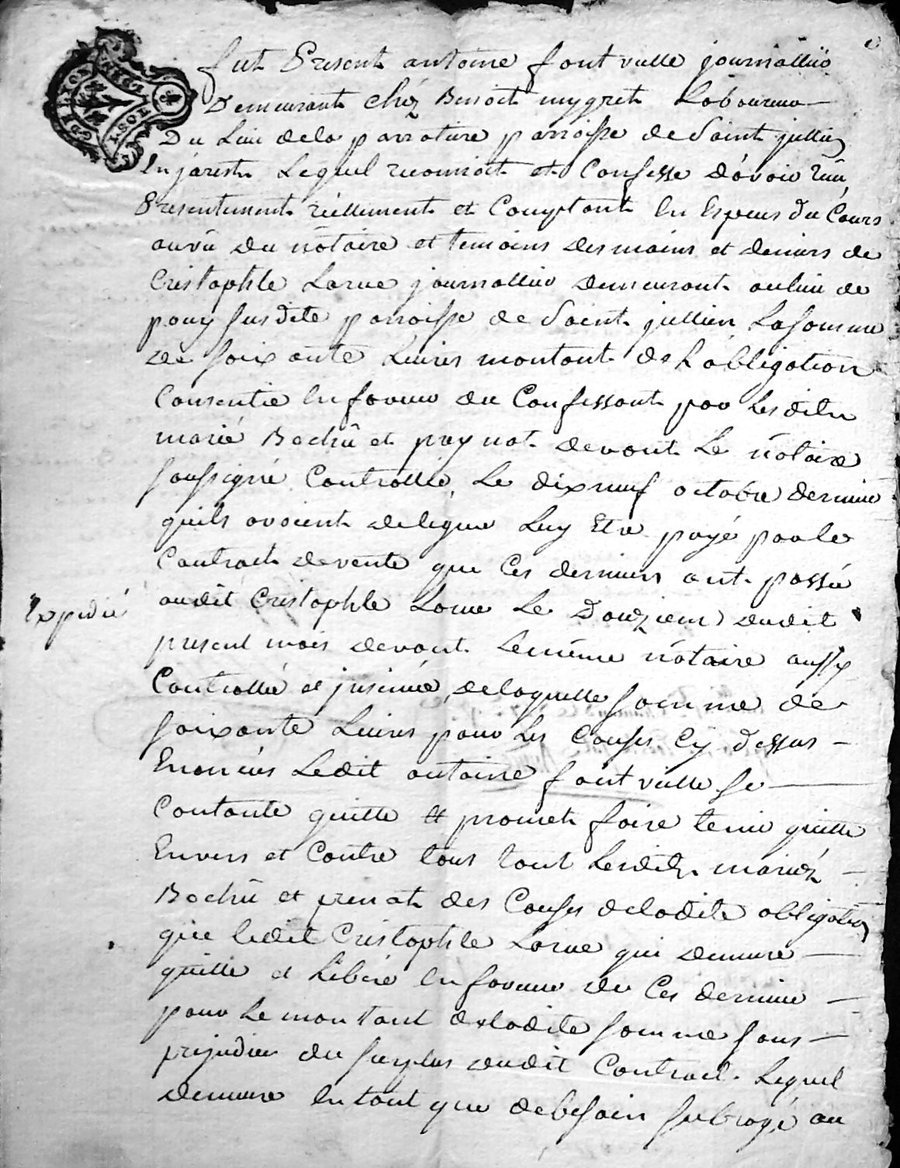 fut Present antoine fontvielle journallie
Demeurant chéz Benoit mygret Laboureur
Du Lieu dela parroisse de Saint jullien
En jarest Lequel reconnoit et Confesse d'avoir reçu
Presentement réellement et Comptant En Especes du Cours
auvû du nôtaire et temoins des mains et deniers de
Cristophle Larue journallier demeurant aulieu de
pouy susdite parroisse de Saint jullien Lasomme
de soixante Livres montant de L'obligation
Consentie En faveur du Confessant par Lesdits
mariés Bachû et paynat devant Le nôtaire
soussigné Controllée Le dixneuf octobre dernier
quils avoient delegué Luy Etre payé par le
Contract devente que Ces derniers ont passé
audit Cristophle Larue Le Douzieme dudit
Expedié
present mois devant Lemême nôtaire aussy
Controllé et jnsinué, delaquelle somme de
soixante Livres pour Les Causes Cy dessus
Enoncées Ledit antoine fontvielle se
Contante quitte et promet faire tenir quitte
Envers et Contre tous tant Lesdits mariéz
Bachû et des Causes deladite obligation
que ledit Cristophle Larue qui demeure
quitte et Libéré En faveur de Ces derniers
pour Le montant deladite somme sans
prejudice du surplus dudit Contract. Lequel
demeure En tant que debesoin subrogé au